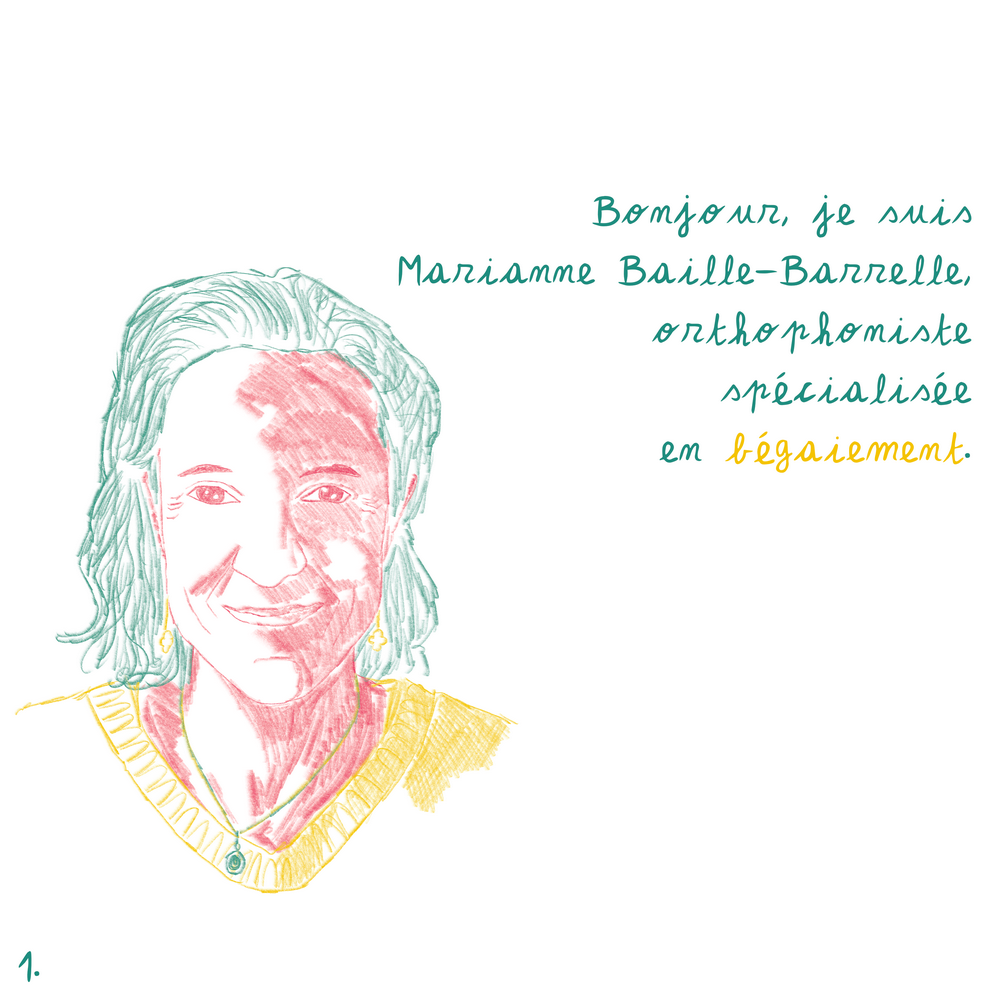 Bonjour, je suis
Marianne Baille-Barrelle,
orthophoniste
spécialisée
en bégaiement.
1.